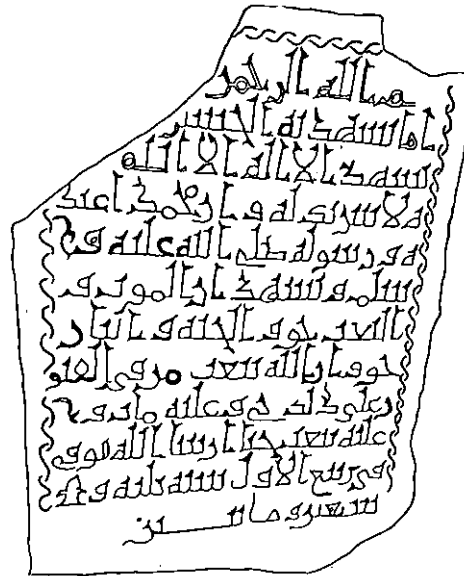 سم الله الرحمن
ما يشهد به الحسن
يشهد الا اله الا الله
ه لا شريك له وان محمدا عبد
ه ورسوله صلى الله عليه و
سلم ويشهد ان الموت و
البعث حق والجنة والنار
حق وان الله يبعث من في القبو
ر على ذلك حي وعليه مات و
عليه يبعث حيا ان شاء الله توفي
في ربيع الاول سنة ثلثة و
ومائتين